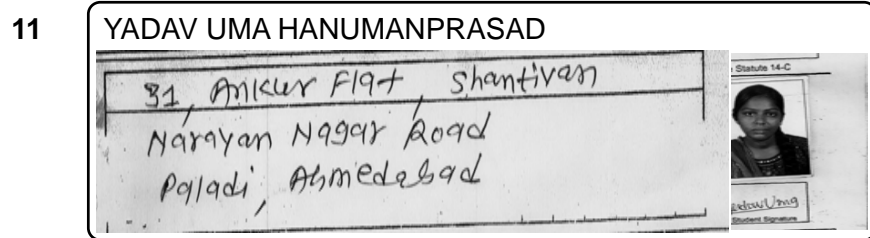 11
YADAV UMA HANUMANPRASAD
31, Ankur Flat, Shantivan
Narayan Nagar Road
Paladi, Ahmedabad
Statute 14-C
Uma
Student Signature